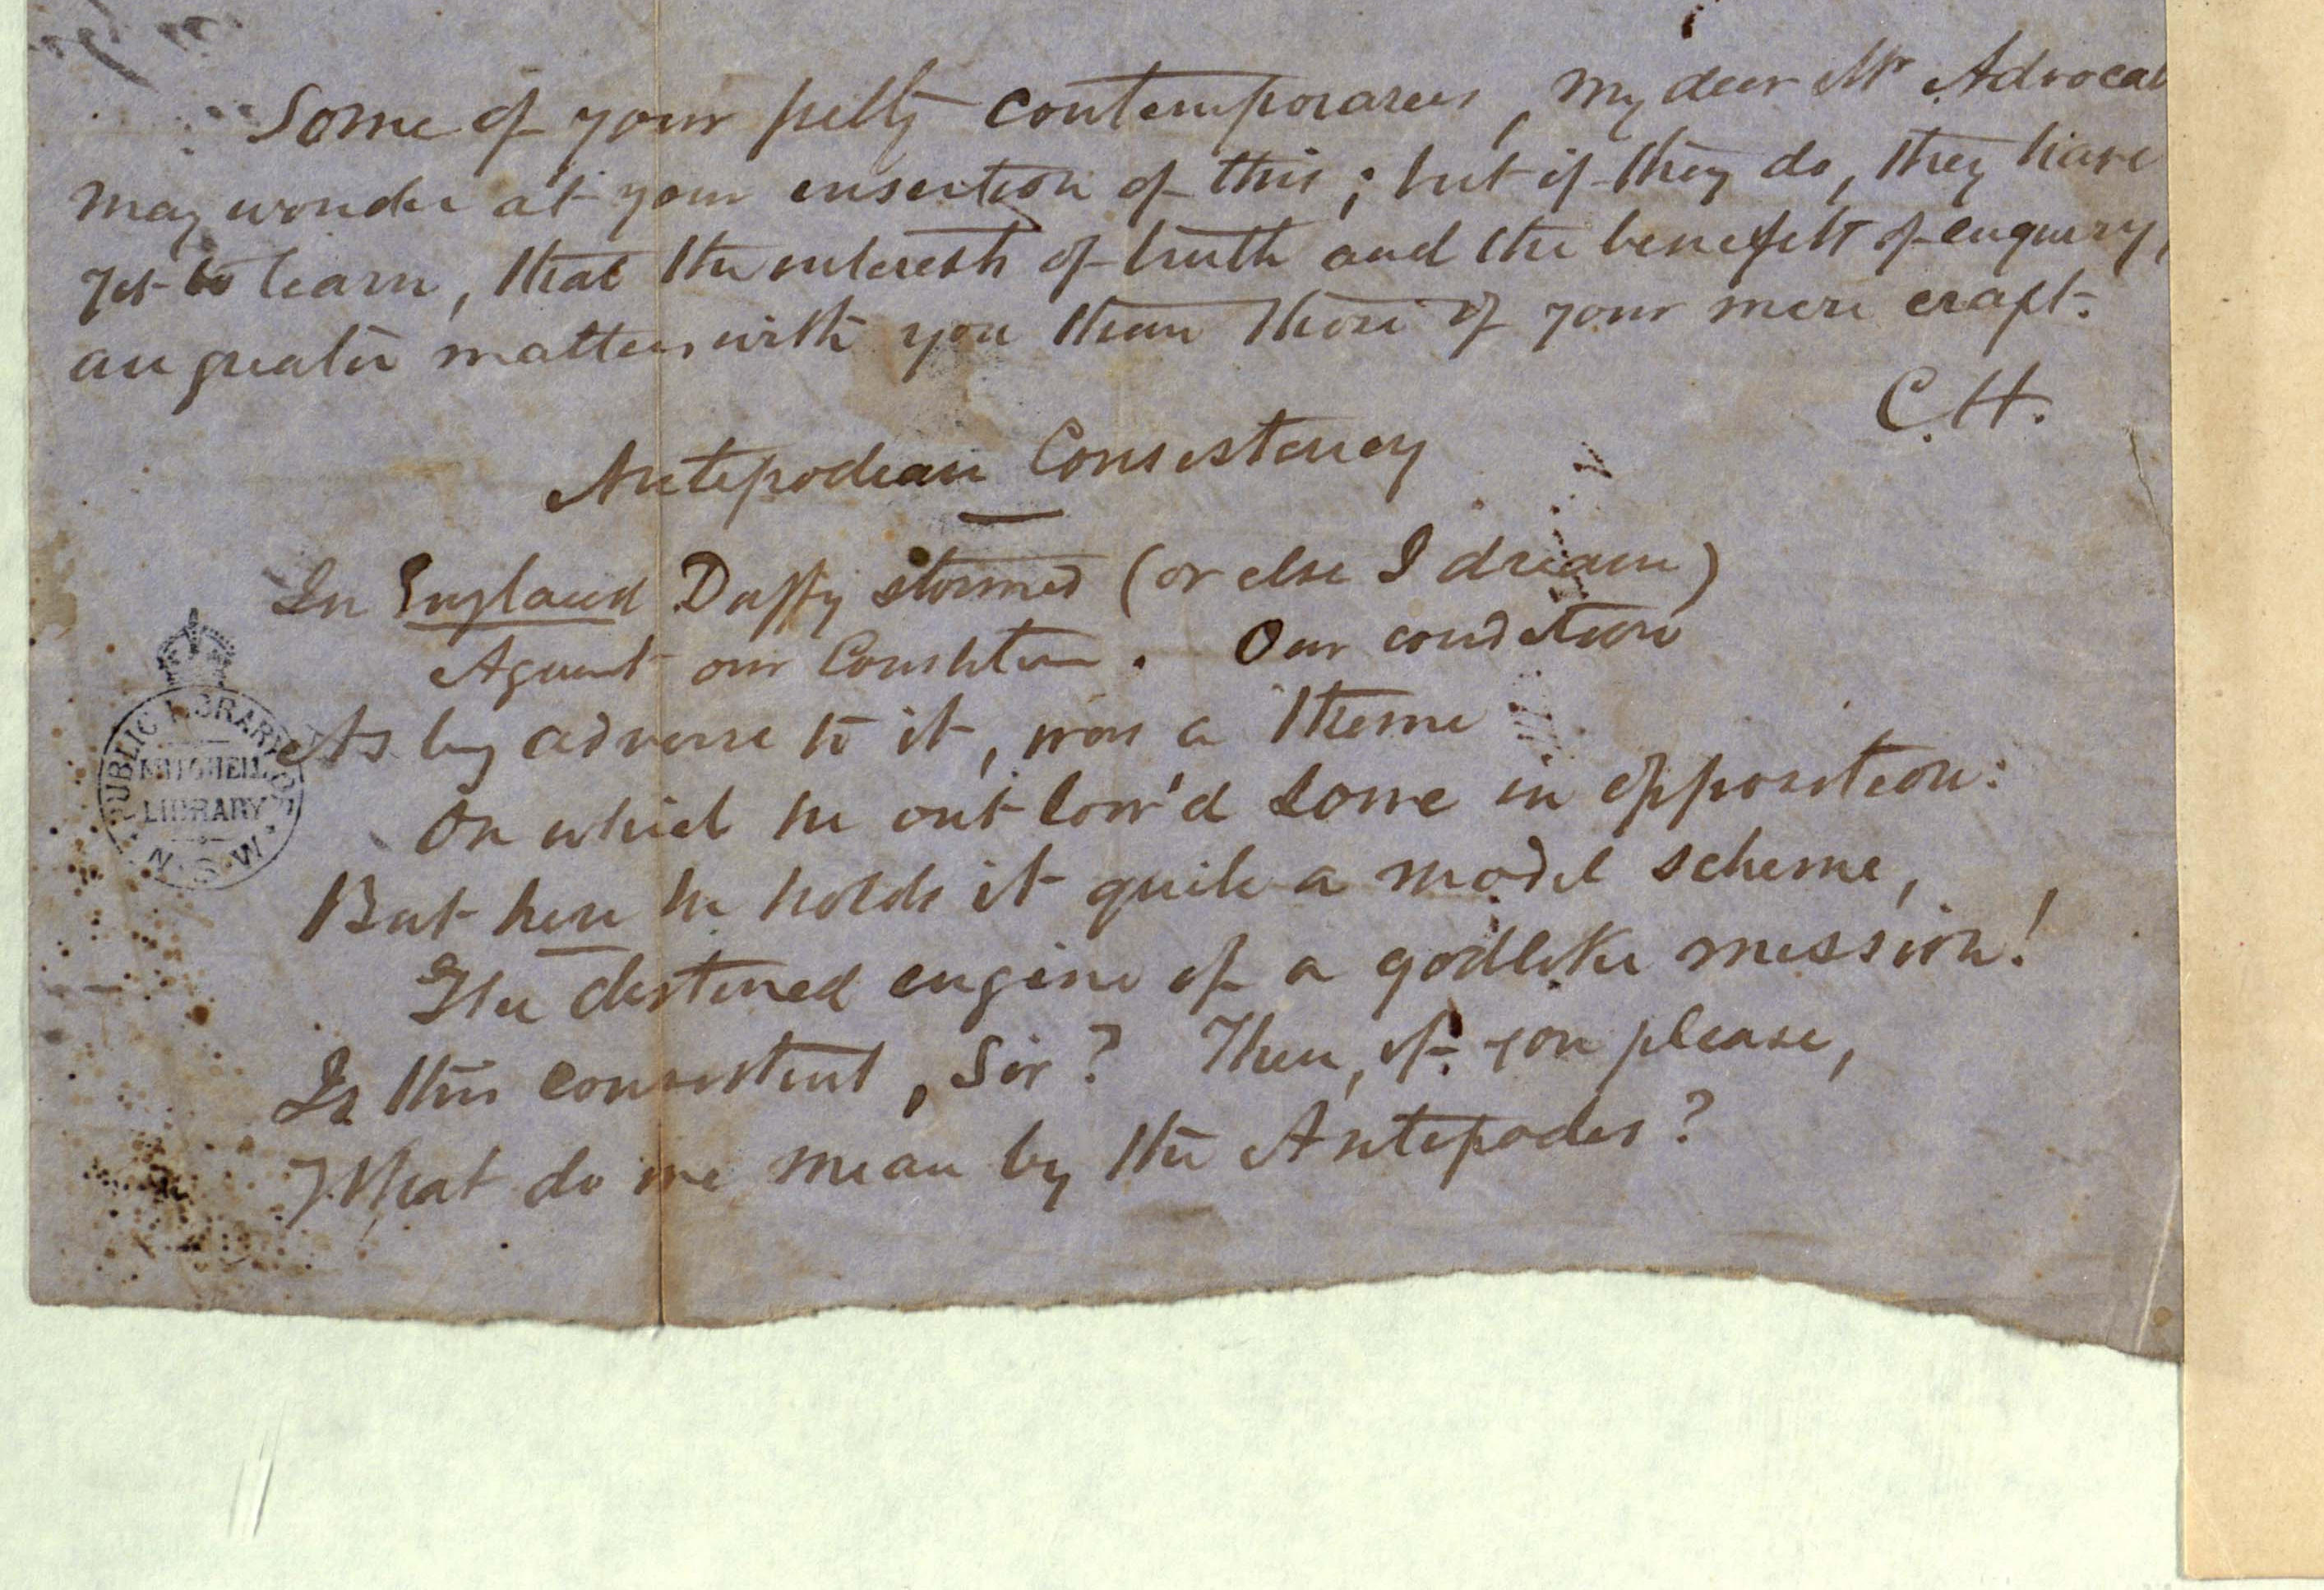 Some of your petty contemporaries, my dear Mr Advocat
may wonder at your insertion of this; but if they do, they have
yet to learn, that the interests of truth and the benefits of enquiry,
are greater matters with you than those of your mere craft.
C.H.
Antipodean Consistency
In England Duffy stormed (or else I dream)
Against our Constitution. Our condition
As by adverse to it, was a theme
On which he out-low'd Lowe in opposition:
But here he holds it quite a model scheme,
The destined engine of a godlike mission!
Is this consistent, Sir? Then, if you please,
What do we mean by the Antipodes?
PUBLIC LIBRARY OF
MITCHELL
LIBRARY
N.S.W.